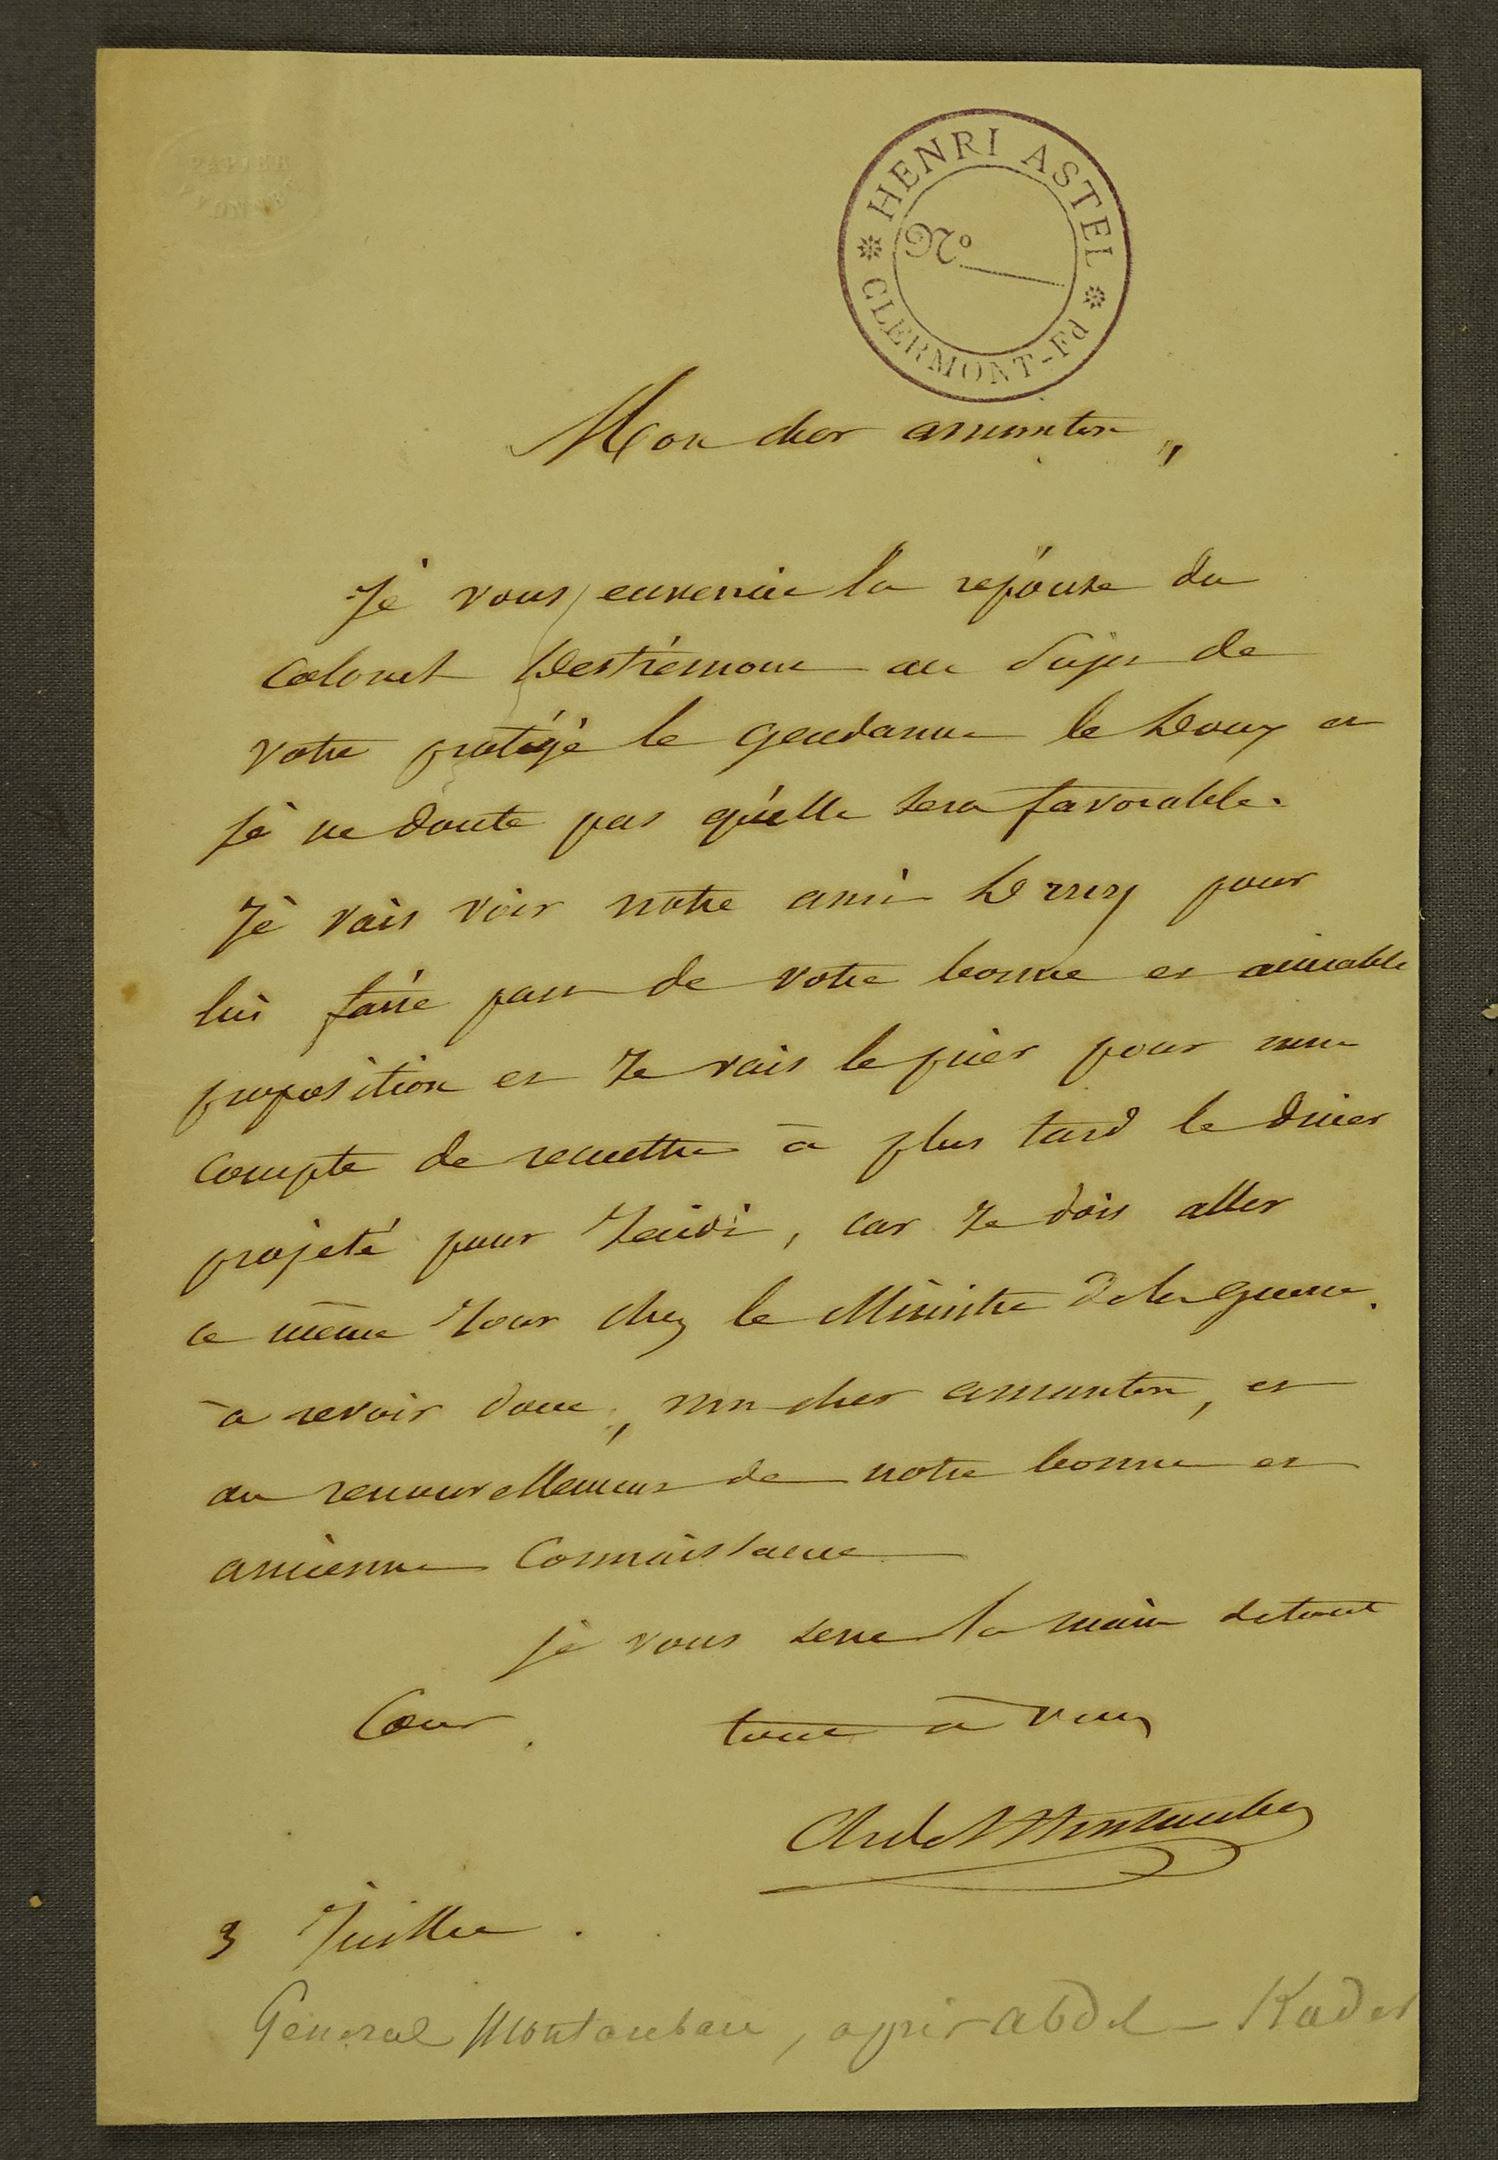 HENRI ASTEL
N°
CLERMONT-Fd
Mon cher amunton,
Je vous envenrie la réponse du
Colonel Destrémon au Sujet de
votre protégé le gendarme le Doux et
je ne doute pas qu'elle sera favorable.
Je vais voir notre ami Druy pour
lui faire part de votre bonne et aimable
proposition et Je vais le prier pour mon
compte de remettre à plus tard le diner
projeté pour Jeudi, car Je dois aller
ce même Jour chez le Ministre de la guerre.
à revoir donc, mon cher amunton, et
au renouvellement de notre bonne et
ancienne Connaissance
je vous serre la main de tout
Coeur. tout à vous
Ch de Montauban
3 Juillet.
General Montauban, après Abd el-Kader